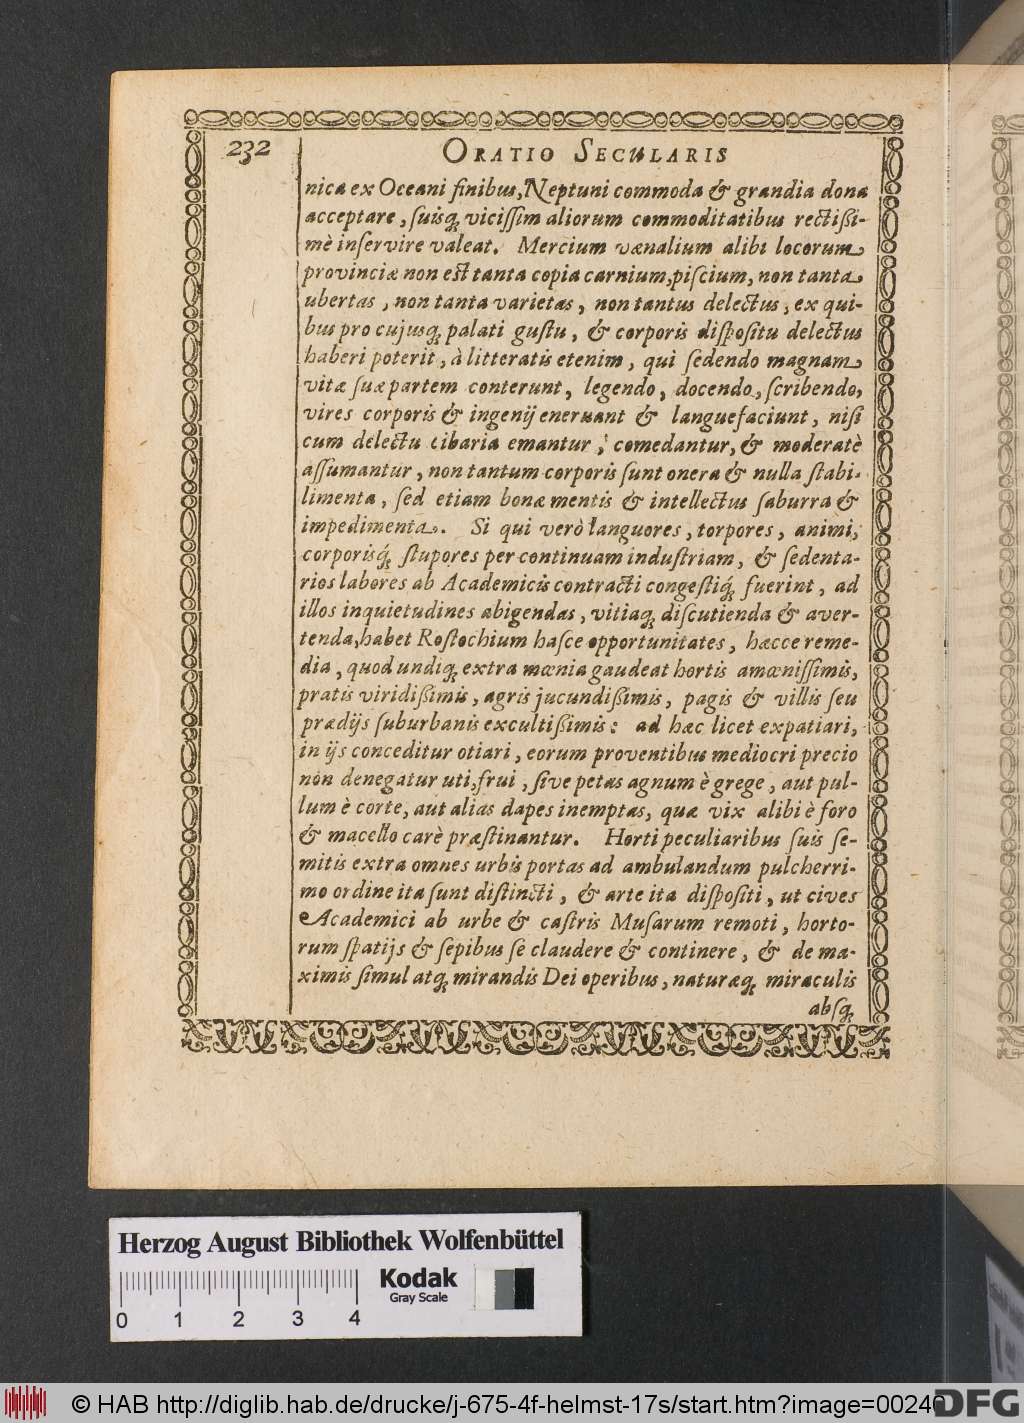 232
ORATIO SECULARIS
nica ex Oceani finibus, Neptuni commoda & grandia dona
acceptare, ſuisq́; viciſſim aliorum commoditatibus rectißi-
mè inſervire valeat. Mercium vænalium alibi locorum
provinciæ non est tanta copia carnium, piſcium, non tanta
ubertas, non tanta varietas, non tantus delectus, ex qui-
bus pro cujusq; palati guſtu, & corporis diſpoſitu delectus
haberi poterit, à litteratis etenim, qui ſedendo magnam
vitæ ſuæ partem conterunt, legendo, docendo, ſcribendo,
vires corporis & ingenij enervant & languefaciunt, niſi
cum delectu cibaria emantur, comedantur, & moderatè
aſſumantur, non tantum corporis ſunt onera & nulla ſtabi-
limenta, ſed etiam bonæ mentis & intellectus ſaburra &
impedimenta. Si qui verò languores, torpores, animi,
corporisq́; ſtupores per continuam induſtriam, & ſedenta-
rios labores ab Academicis contracti congeſtiq́; fuerint, ad
illos inquietudines abigendas, vitiaq; diſcutienda & aver-
tenda, habet Roſtochium haſce opportunitates, hæcce reme-
dia, quod undiq; extra mœnia gaudeat hortis amœniſſimis,
pratis viridißimis, agris jucundißimis, pagis & villis ſeu
prædijs ſuburbanis excultißimis: ad hæc licet expatiari,
in ijs conceditur otiari, eorum proventibus mediocri precio
non denegatur uti, frui, ſive petas agnum è grege, aut pul-
lum è corte, aut alias dapes inemptas, quæ vix alibi è foro
& macello carè præſtinantur. Horti peculiaribus ſuis ſe-
mitis extra omnes urbis portas ad ambulandum pulcherri-
mo ordine ita ſunt diſtincti, & arte ita diſpoſiti, ut cives
Academici ab urbe & caſtris Muſarum remoti, horto-
rum ſpatijs & ſepibus ſe claudere & continere, & de ma-
ximis ſimul atq; mirandis Dei operibus, naturæq; miraculis
abſq;
Herzog August Bibliothek Wolfenbüttel
Kodak
Gray Scale
0 1 2 3 4
© HAB http://diglib.hab.de/drucke/j-675-4f-helmst-17s/start.htm?image=00240
DFG